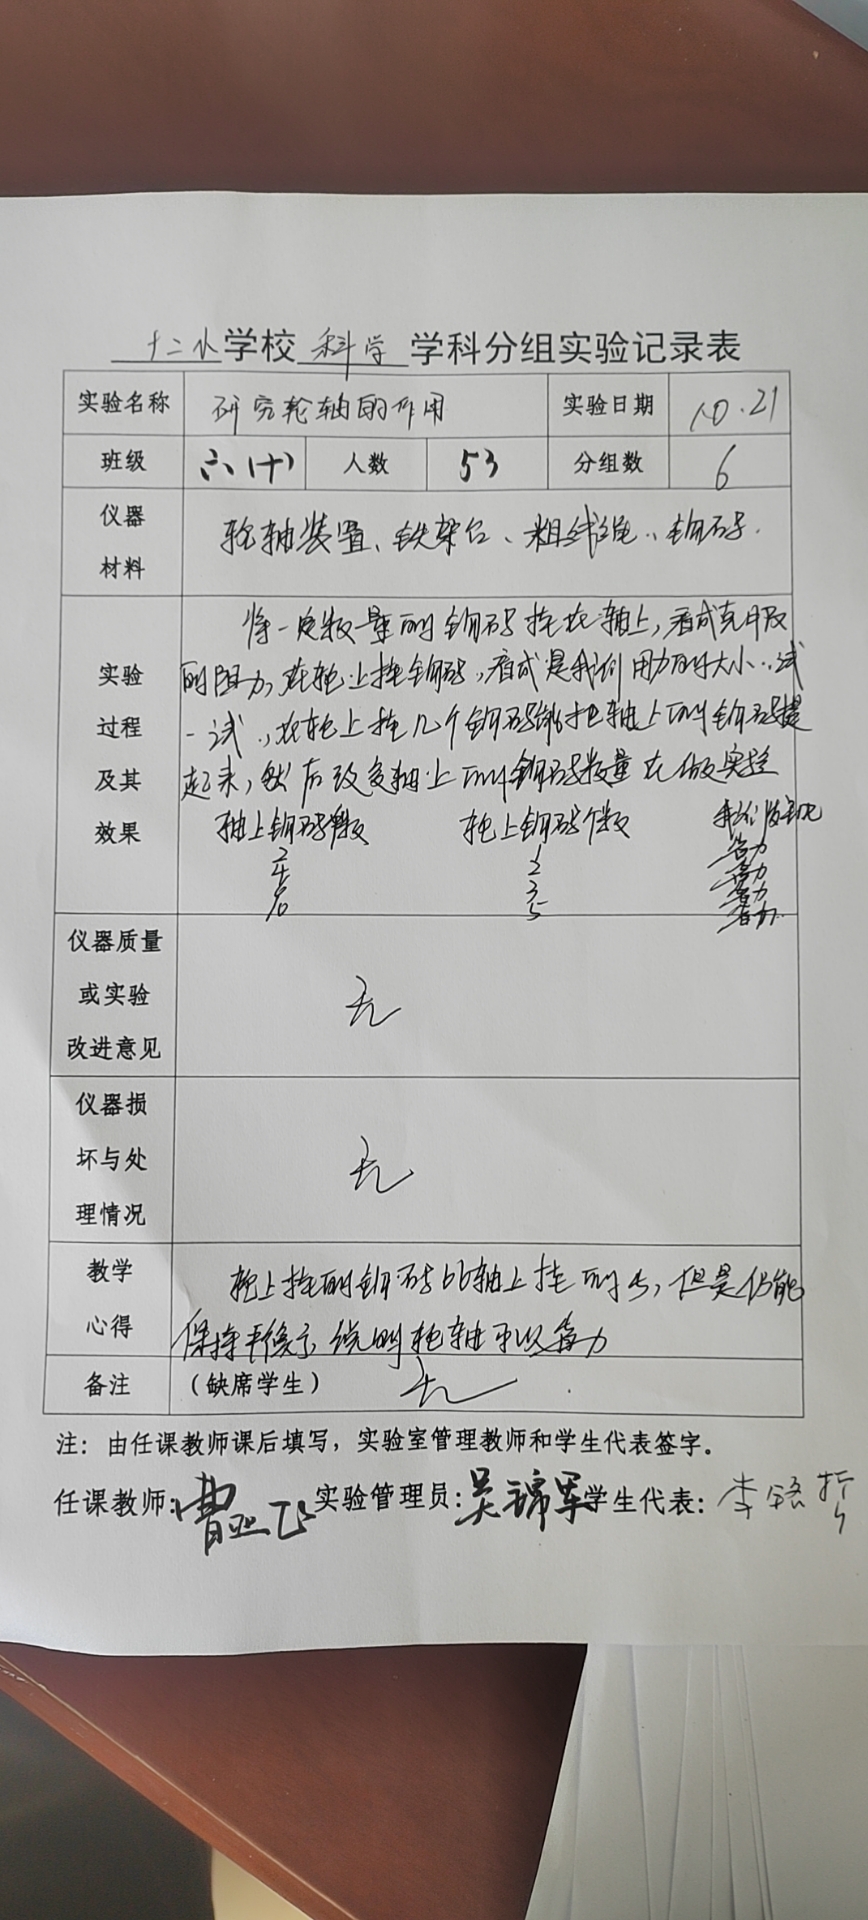 十二小学校 科学 学科分组实验记录表
实验名称 研究轮轴的作用 实验日期 10.21
班级 六(十) 人数 53 分组数 6
仪器
材料
轮轴装置、铁架台、粗线绳、钩码.
实验
过程
及其
效果
将一定数量的钩码挂在轴上,看成克服
的阻力,在轮上挂钩码,看成是我们用力的大小.试
一试,在轮上挂几个钩码能把轴上的钩码提
起来,然后改变轴上的钩码数量在做实验
轴上钩码个数 轮上钩码个数 我们发现
2 1 省力
4 2 省力
6 3 省力
10 5 省力
仪器质量
或实验
改进意见
无
仪器损
坏与处
理情况
无
教学
心得
轮上挂的钩码比轴上挂的少,但是仍能
保持平衡,说明轮轴可以省力
备注 (缺席学生) 无
注:由任课教师课后填写,实验室管理教师和学生代表签字。
任课教师:曹亚飞 实验管理员:吴锦军 学生代表:李铭哲